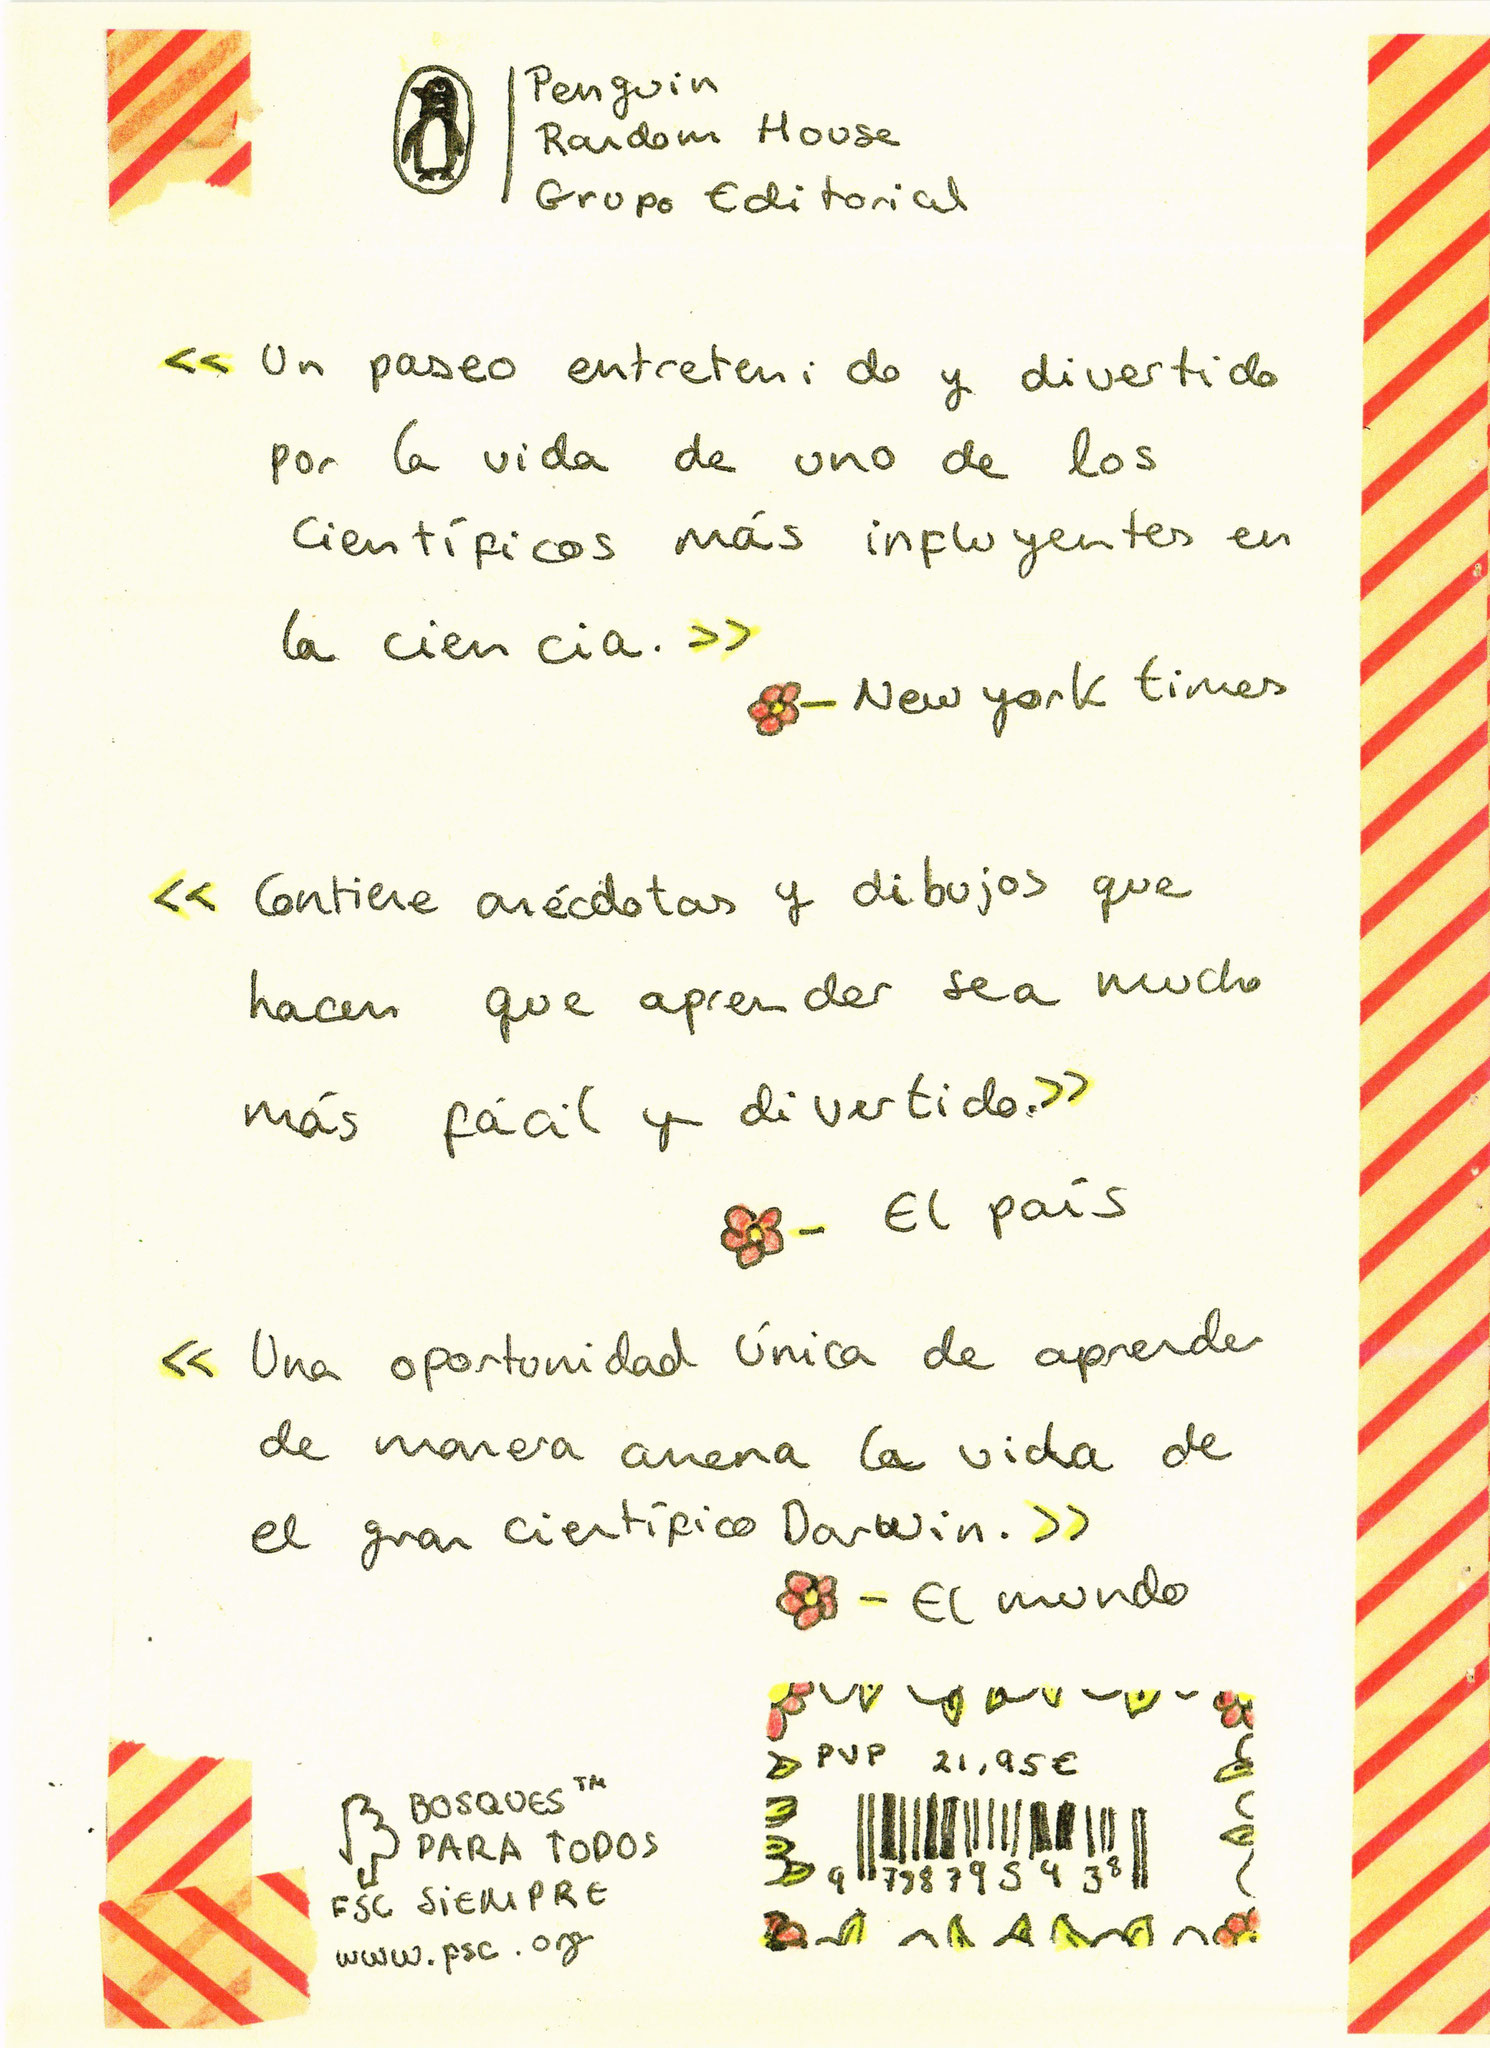 Penguin
Random House
Grupo Editorial
<< Un paseo entretenido y divertido
por la vida de uno de los
científicos más influyentes en
la ciencia. >>
- New york times
<< Contiene anécdotas y dibujos que
hacen que aprender sea mucho
más fácil y divertido. >>
- El país
<< Una oportunidad única de aprender
de manera amena la vida de
el gran científico Darwin. >>
- El mundo
PVP 21,95€
BOSQUES™
PARA TODOS
FSC SIEMPRE
www.fsc.org